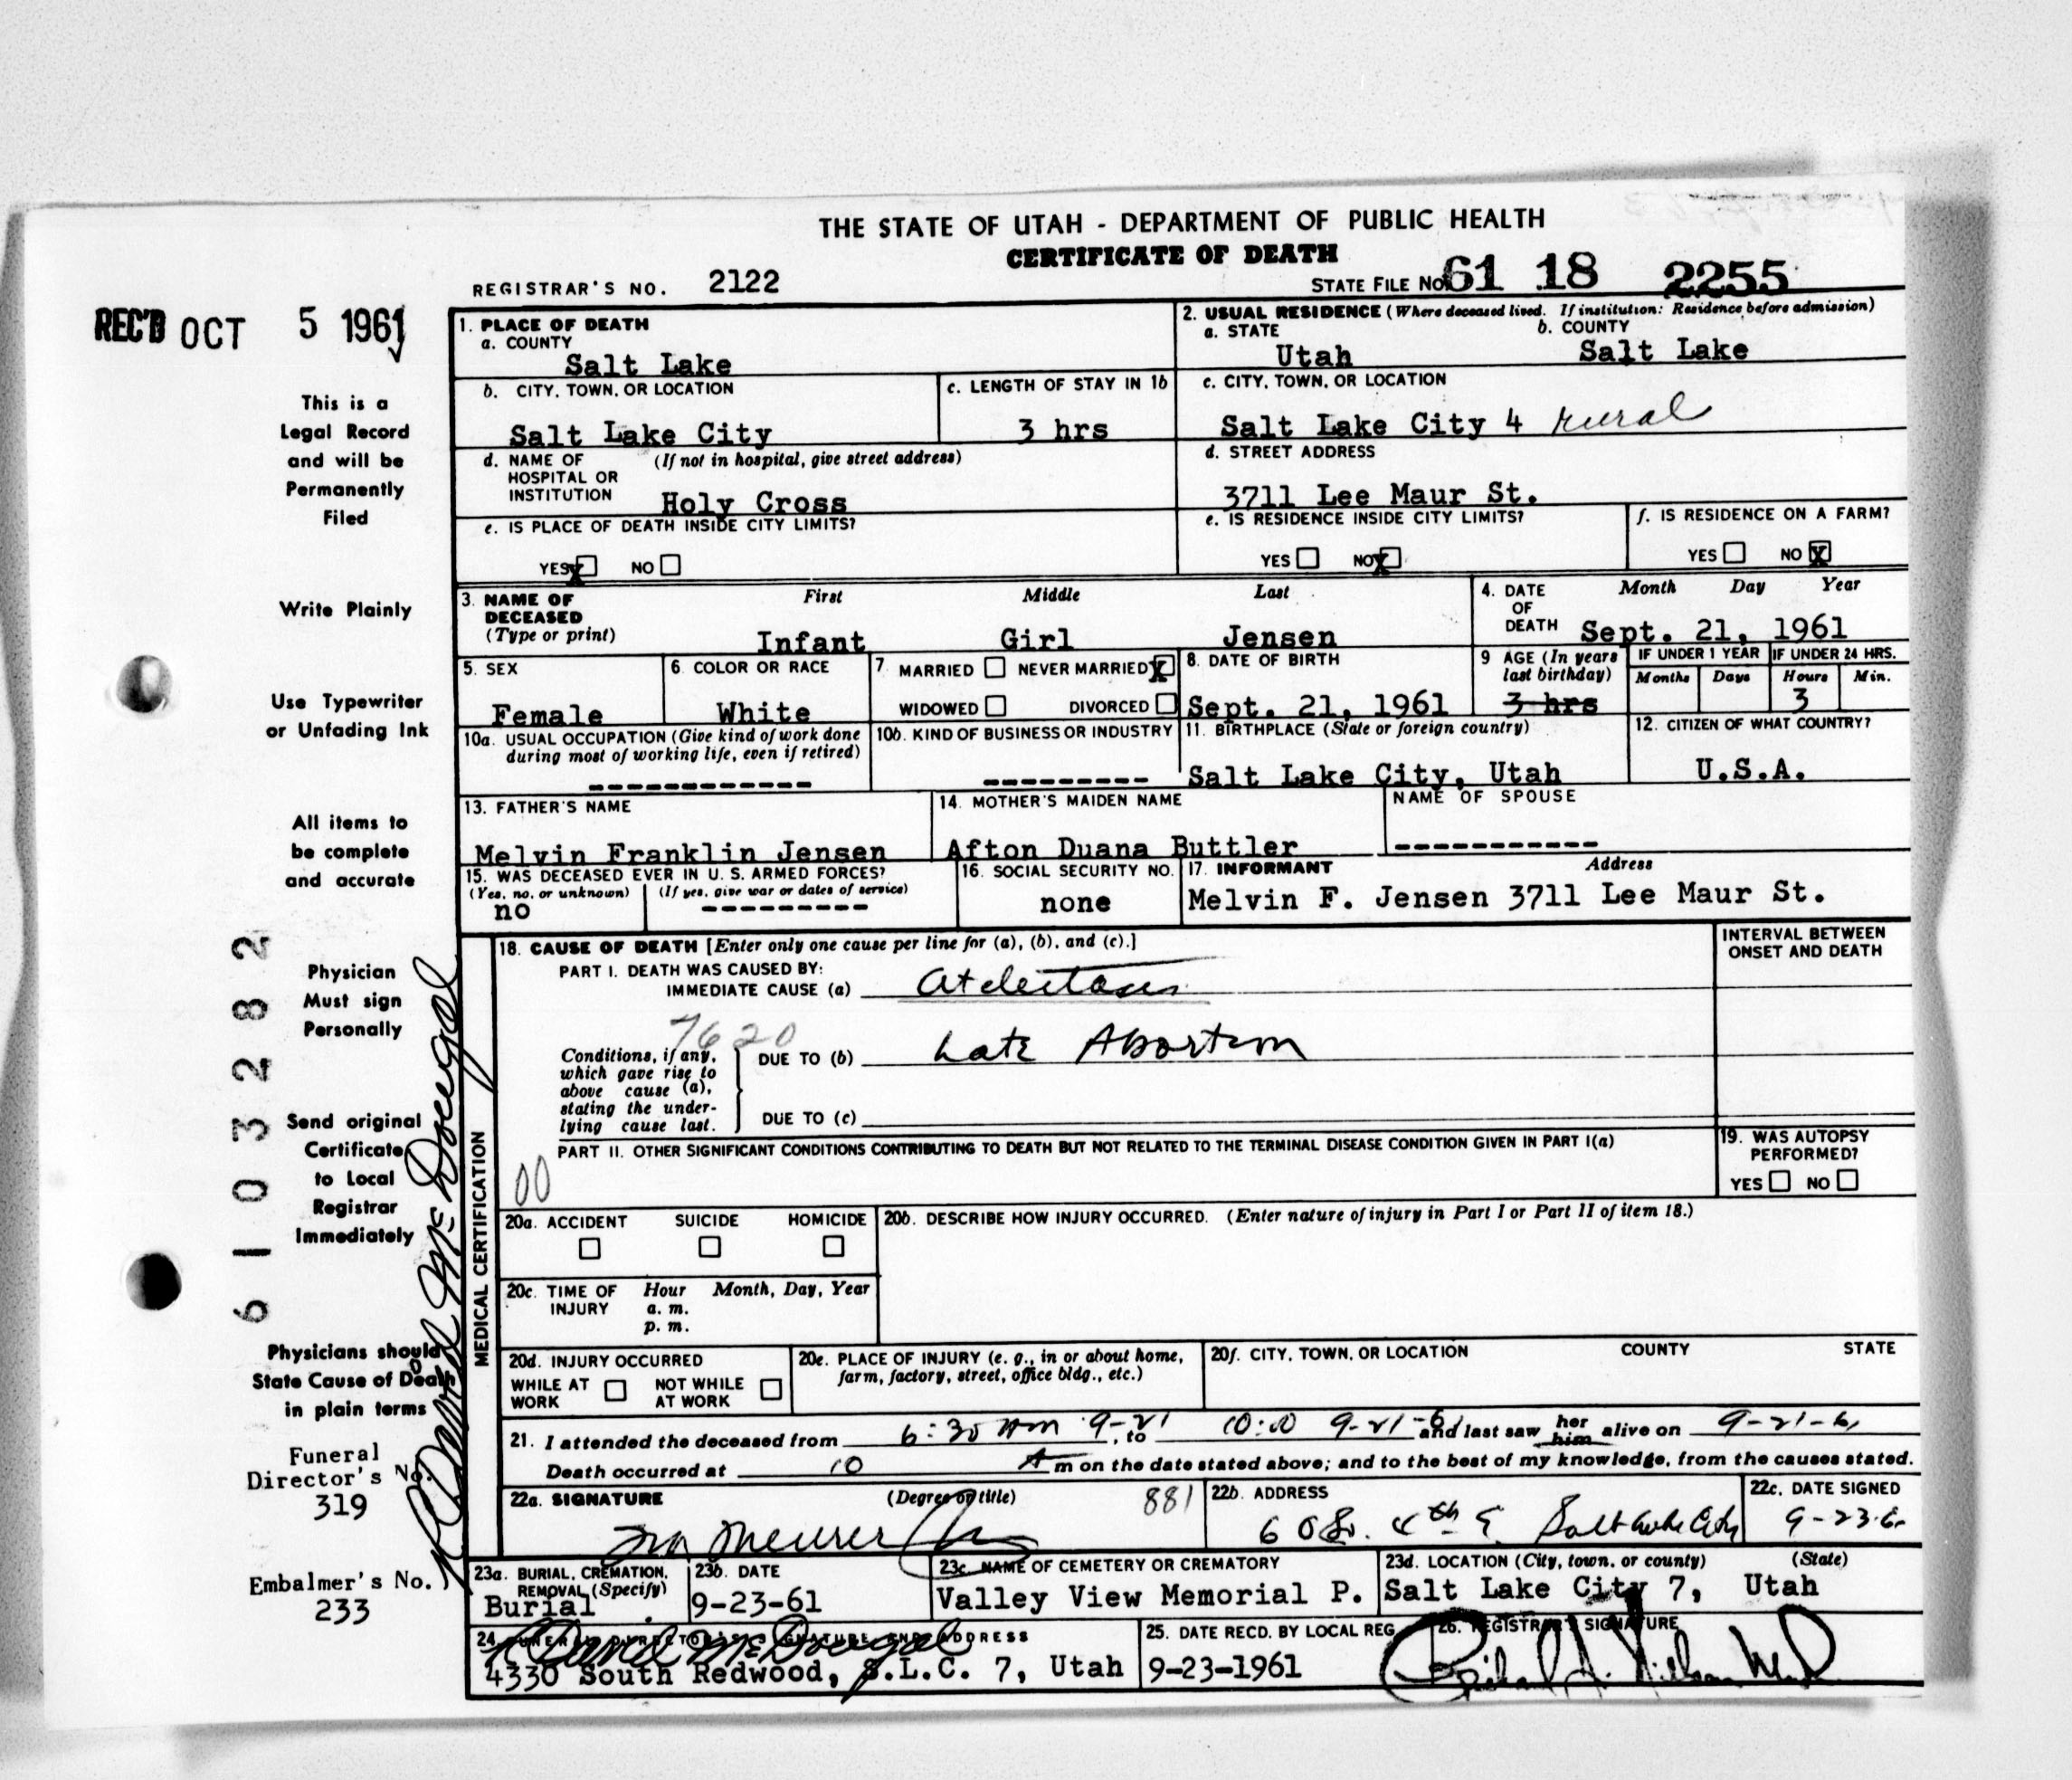 THE STATE OF UTAH - DEPARTMENT OF PUBLIC HEALTH
CERTIFICATE OF DEATH
REGISTRAR'S NO. 2122
STATE FILE NO. 61 18 2255
REC'D OCT 5 1961
This is a
Legal Record
and will be
Permanently
Filed
Write Plainly
Use Typewriter
or Unfading Ink
All items to
be complete
and accurate
Physician
Must sign
Personally
Send original
Certificate
to Local
Registrar
Immediately
Physicians should
State Cause of Death
in plain terms
Funeral
Director's No.
319
Embalmer's No.
233
61 03282
McDougal
1. PLACE OF DEATH
a. COUNTY
Salt Lake
b. CITY, TOWN, OR LOCATION
Salt Lake City
c. LENGTH OF STAY IN 1b
3 hrs
d. NAME OF (If not in hospital, give street address)
HOSPITAL OR
INSTITUTION
Holy Cross
e. IS PLACE OF DEATH INSIDE CITY LIMITS?
YES X NO
2. USUAL RESIDENCE (Where deceased lived. If institution: Residence before admission)
a. STATE
Utah
b. COUNTY
Salt Lake
c. CITY, TOWN, OR LOCATION
Salt Lake City 4 rural
d. STREET ADDRESS
3711 Lee Maur St.
e. IS RESIDENCE INSIDE CITY LIMITS?
YES NO X
f. IS RESIDENCE ON A FARM?
YES NO X
3. NAME OF
DECEASED
(Type or print)
First Middle Last
Infant Girl Jensen
4. DATE
OF
DEATH
Month Day Year
Sept. 21, 1961
5. SEX
Female
6. COLOR OR RACE
White
7. MARRIED NEVER MARRIED X
WIDOWED DIVORCED
8. DATE OF BIRTH
Sept. 21, 1961
9 AGE (In years
last birthday)
3 hrs
IF UNDER 1 YEAR
Months Days
IF UNDER 24 HRS.
Hours Min.
3
10a. USUAL OCCUPATION (Give kind of work done
during most of working life, even if retired)
------------
10b. KIND OF BUSINESS OR INDUSTRY
---------
11. BIRTHPLACE (State or foreign country)
Salt Lake City, Utah
12. CITIZEN OF WHAT COUNTRY?
U.S.A.
13. FATHER'S NAME
Melvin Franklin Jensen
14. MOTHER'S MAIDEN NAME
Afton Duana Buttler
NAME OF SPOUSE
-----------
15. WAS DECEASED EVER IN U. S. ARMED FORCES?
(Yes, no, or unknown) (If yes, give war or dates of service)
no ---------
16. SOCIAL SECURITY NO.
none
17. INFORMANT Address
Melvin F. Jensen 3711 Lee Maur St.
MEDICAL CERTIFICATION
18. CAUSE OF DEATH [Enter only one cause per line for (a), (b), and (c).]
INTERVAL BETWEEN
ONSET AND DEATH
PART I. DEATH WAS CAUSED BY:
IMMEDIATE CAUSE (a) Atelectasis
7620
Conditions, if any,
which gave rise to
above cause (a),
stating the under-
lying cause last.
DUE TO (b) Late Abortion
DUE TO (c)
PART II. OTHER SIGNIFICANT CONDITIONS CONTRIBUTING TO DEATH BUT NOT RELATED TO THE TERMINAL DISEASE CONDITION GIVEN IN PART I(a)
00
19. WAS AUTOPSY
PERFORMED?
YES NO
20a. ACCIDENT SUICIDE HOMICIDE
20b. DESCRIBE HOW INJURY OCCURRED. (Enter nature of injury in Part I or Part II of item 18.)
20c. TIME OF
INJURY
Hour Month, Day, Year
a. m.
p. m.
20d. INJURY OCCURRED
WHILE AT
WORK
NOT WHILE
AT WORK
20e. PLACE OF INJURY (e. g., in or about home,
farm, factory, street, office bldg., etc.)
20f. CITY, TOWN, OR LOCATION COUNTY STATE
21. I attended the deceased from 6:30 Am 9-21, to 10:00 9-21-61 and last saw her him alive on 9-21-61
Death occurred at 10 A m on the date stated above; and to the best of my knowledge, from the causes stated.
22a. SIGNATURE (Degree or title)
881
22b. ADDRESS
Salt Lake City
22c. DATE SIGNED
9-23-6
23a. BURIAL, CREMATION,
REMOVAL (Specify)
Burial
23b. DATE
9-23-61
23c. NAME OF CEMETERY OR CREMATORY
Valley View Memorial P.
23d. LOCATION (City, town, or county) (State)
Salt Lake City 7, Utah
24. FUNERAL DIRECTOR'S SIGNATURE AND ADDRESS
McDougal
4330 South Redwood, S.L.C. 7, Utah
25. DATE RECD. BY LOCAL REG.
9-23-1961
26. REGISTRAR'S SIGNATURE